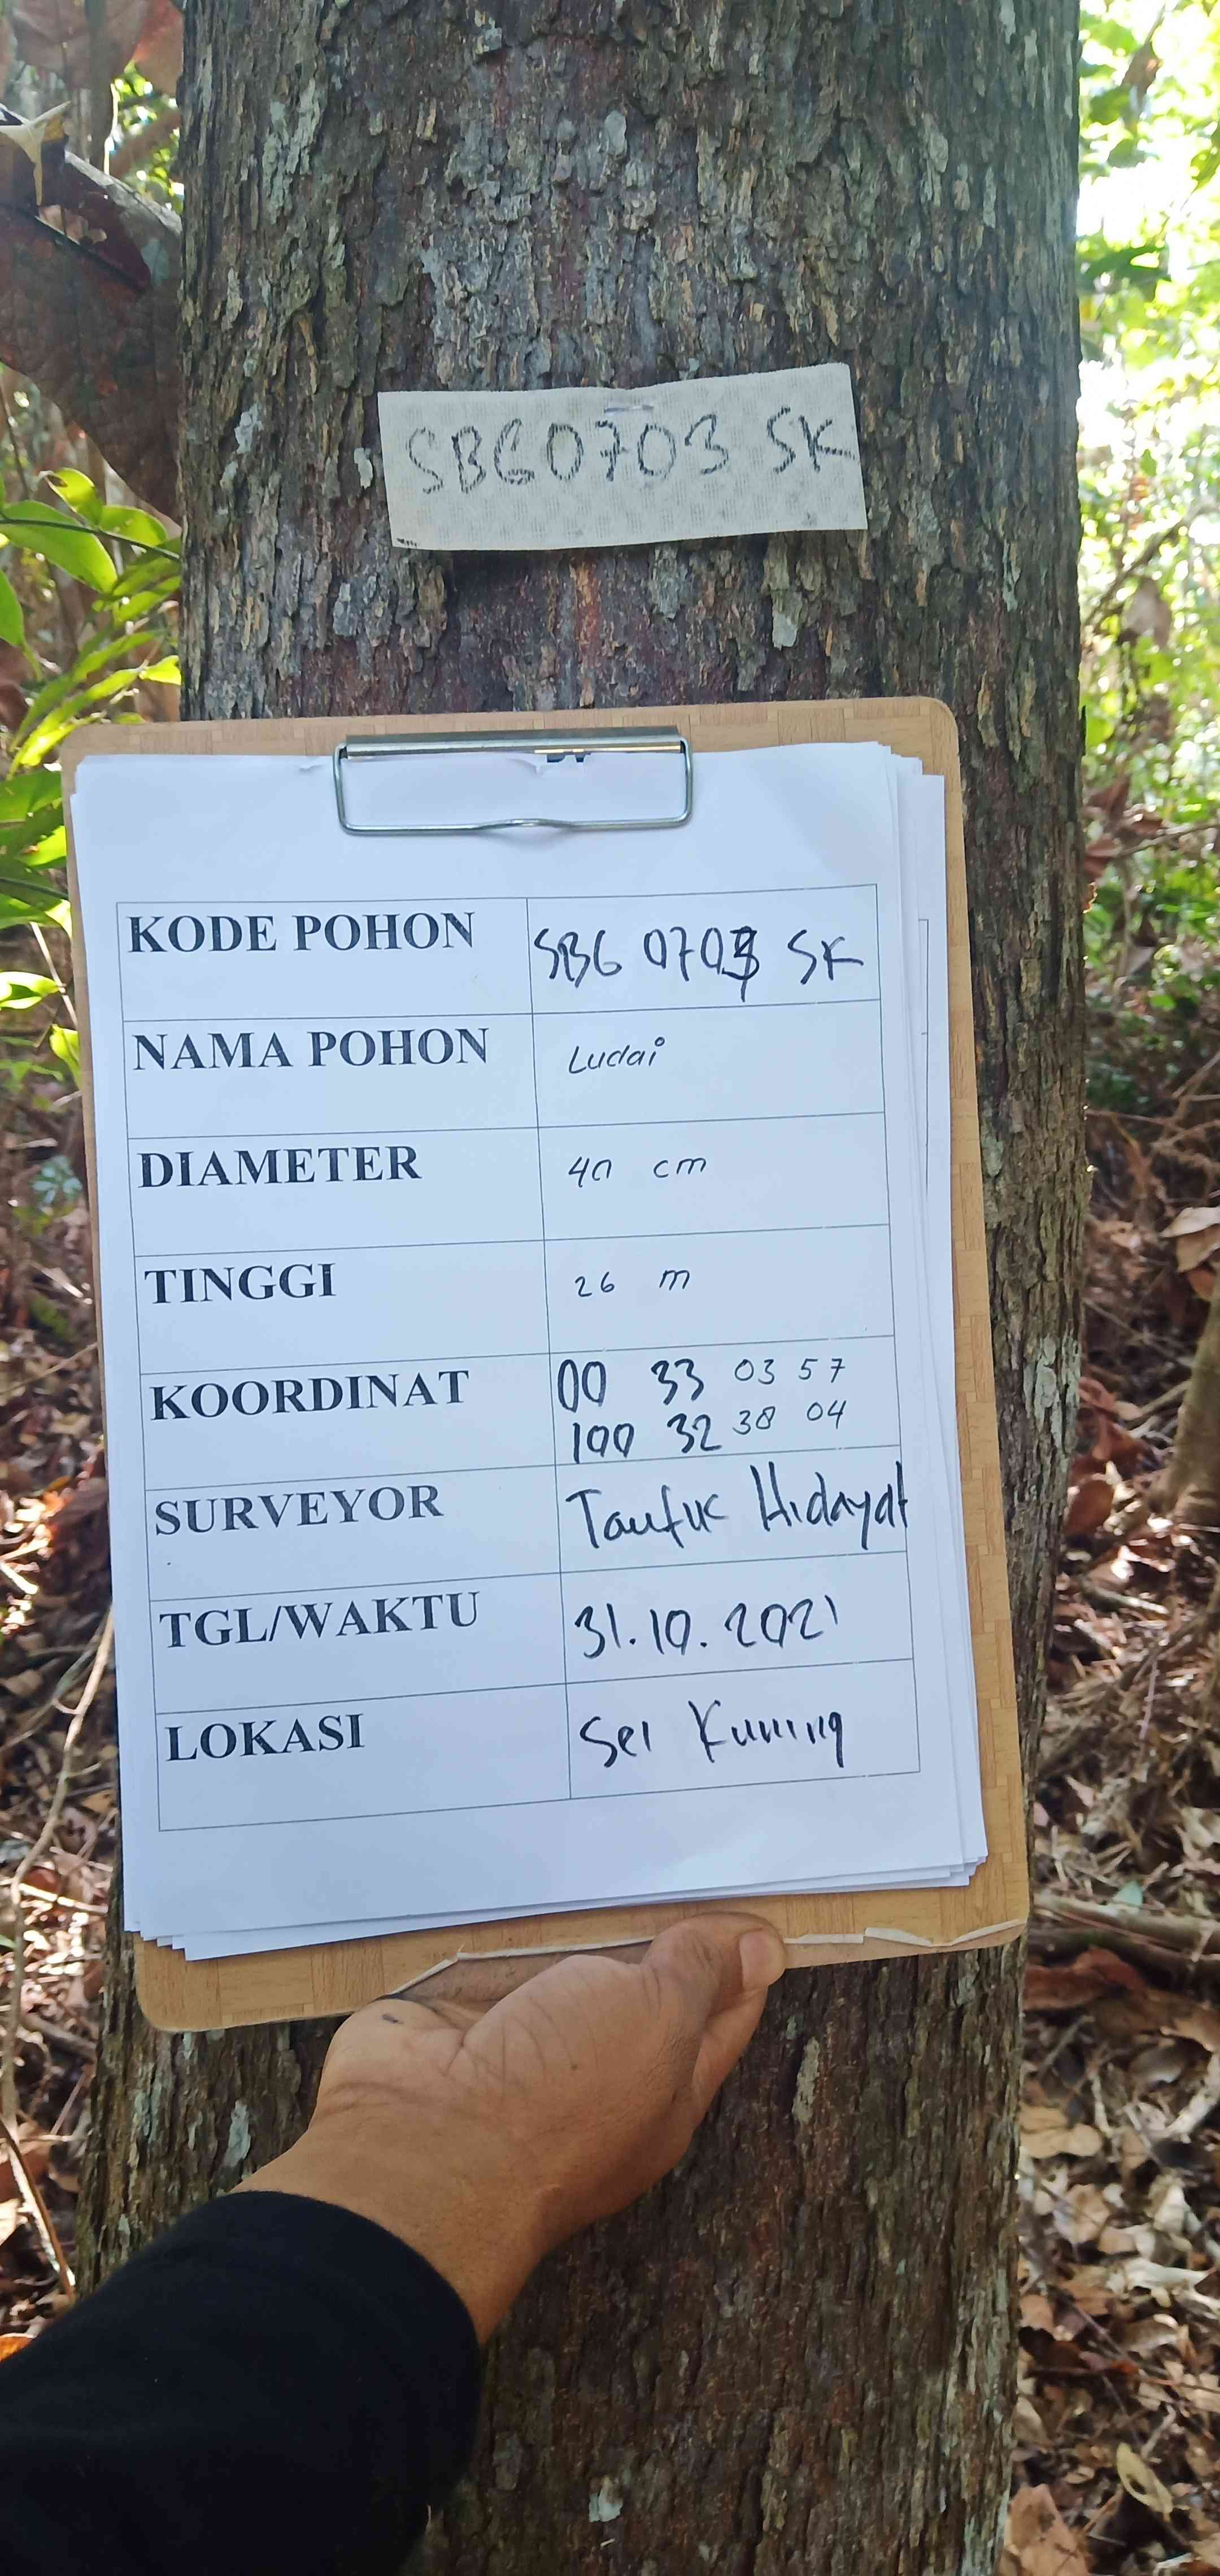 SBG0703 SK
KODE POHON SBG 0703 SK
NAMA POHON Ludai
DIAMETER 40 cm
TINGGI 26 m
KOORDINAT 00 33 03 57
100 32 38 04
SURVEYOR Taufik Hidayat
TGL/WAKTU 31.10.2021
LOKASI Sei Kuning